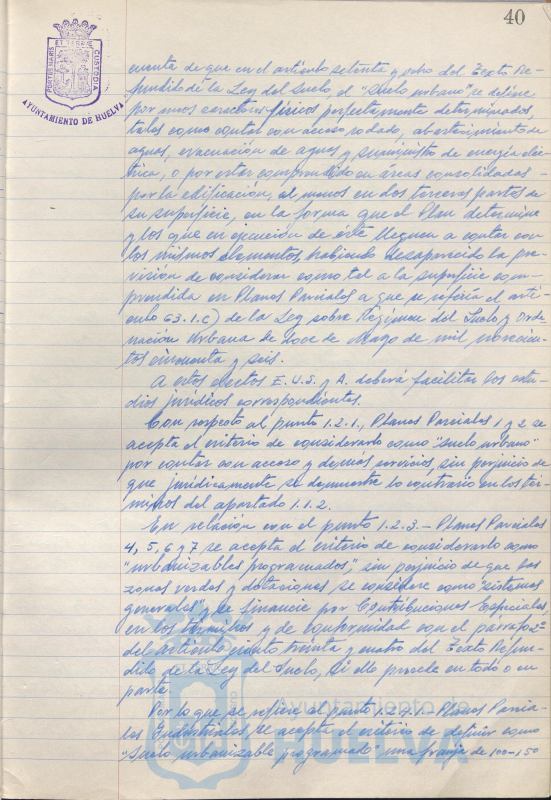 40
PORTUS MARIS
ET TERRAE
CUSTODIA
AYUNTAMIENTO DE HUELVA
cuenta de que en el artículo setenta y ocho del Texto Re-
fundido de la Ley del Suelo, el "Suelo urbano" se define
por unos caracteres físicos perfectamente determinados,
tales como contar con acceso rodado, abastecimiento de
aguas, evacuación de aguas y suministro de energía eléc-
trica, o por estar comprendido en áreas consolidadas
por la edificación, al menos en dos terceras partes de
su superficie, en la forma que el Plan determine
y los que en ejecución de éste lleguen a contar con
los mismos elementos, habiendo desaparecido la pre-
visión de considerar como tal a la superficie com-
prendida en Planes Parciales a que se refería el artí-
culo 63.1.c) de la Ley sobre Régimen del Suelo y Orde-
nación Urbana de doce de Mayo de mil novecien-
tos cincuenta y seis.
A estos efectos E.U.S. y A. deberá facilitar los estu-
dios jurídicos correspondientes.
Con respecto al punto 1.2.1., Planes Parciales 1 y 2 se
acepta el criterio de considerarlo como "suelo urbano"
por contar con acceso y demás servicios, sin perjuicio de
que jurídicamente se demuestre lo contrario en los tér-
minos del apartado 1.1.2.
En relación con el punto 1.2.3.- Planes Parciales
4, 5, 6 y 7 se acepta el criterio de considerarlo como
"urbanizables programados", sin perjuicio de que las
zonas verdes y dotaciones se considere como "sistemas
generales" y se financie por Contribuciones Especiales
en los términos y de conformidad con el párrafo 2º
del artículo ciento treinta y cuatro del Texto Refun-
dido de la Ley del Suelo, si ello procede en todo o en
parte.
Por lo que se refiere al punto 1.2.4.1.- Planes Parcia-
les Industriales, se acepta el criterio de definir como
"Suelo urbanizable programado" una franja de 100-150
Ayuntamiento de
HUELVA